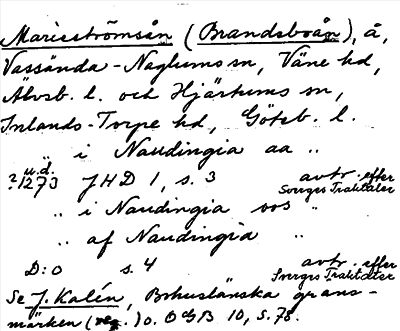 Marieströmsån (Brandsboån), å,
Vassända-Naglums sn, Väne hd,
Älvsb. l. och Hjärtums sn,
Inlands-Torpe hd, Göteb. l.
„ i Naudingia aa „
u.d.
?1273 JHD 1, s. 3 avtr. efter
Sveriges Traktater
„ i Naudingia oos „
„ af Naudingia „
D:o s. 4 avtr. efter
Sveriges Traktater
Se J. Kalén, Bohuslänska gräns-
märken ( ) o. OGB 10, S. 75.